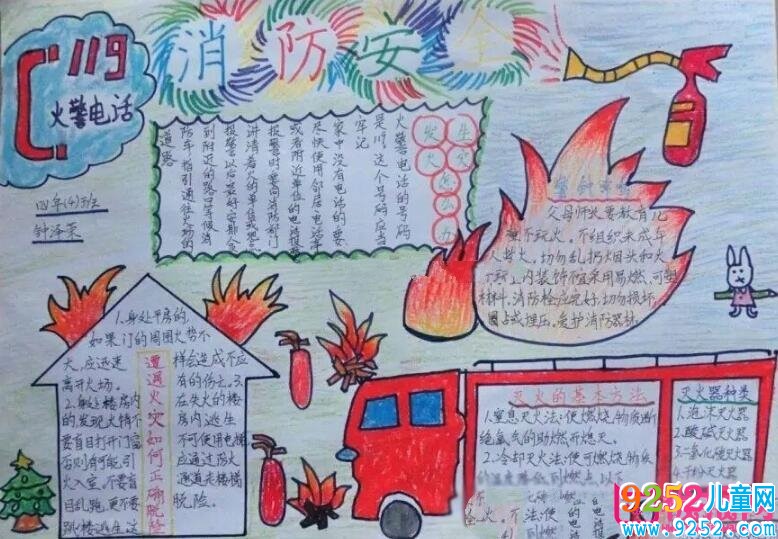 119
火警电话
消防安全
四年(4)班
发生
火灾
怎么办
火警电话的号码
是119这个号码应当
牢记
家中没有电话的要
尽快使用邻居电话
或者附近单位的电话报
报警时要向消防部门
讲清着火的单位或
报警以后最好安排人
到附近的路口等候消
防车指引通往火场的
道路
警钟
父母师长要教育儿
童不玩火。不组织未成年
人救火。切勿乱扔烟头和火
室上内装饰不宜采用易燃、可塑
材料。消防栓应完好,切勿损坏、
圈占或埋压。爱护消防器材
遭遇火灾如何正确脱险
1.身处平房的,
如果门的周围火势不
大,应迅速
离开火场。
2.身处楼房内
的发现火情不
要盲目打开门窗
否则有可能引
火入室。不要盲
目乱跑,更不要
跳楼逃生。这
样会造成不应
有的伤亡。3.
在失火的楼
房内逃生
不可使用电梯
应通过防火
通道走楼梯
脱险。
灭火的基本方法
1.窒息灭火法:使燃烧物质断
绝氧气的助燃而熄灭。
2.冷却灭火法:使可燃烧物质
的温度降低到燃点以下
灭火器种类
1.泡沫灭火器
2.酸碱灭火器
3.二氧化碳灭火器
4.干粉灭火器
9252儿童网
www.9252.com